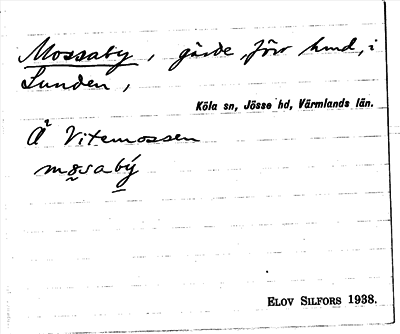 Mossaby, gärde, förr hmd, i
Lunden,
Köla sn, Jösse hd, Värmlands län.
Å Vitemossen
mo̬sabý
ELOV SILFORS 1938.